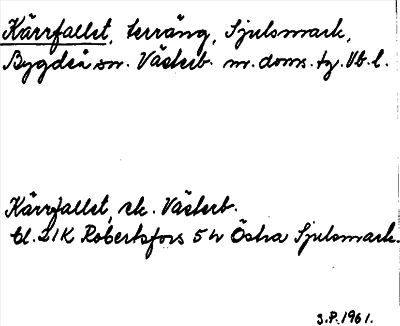 Kärrfallet, terräng, Sjulsmark,
Bygdeå sn. Västerb. n. doms. tg. Vb. l.
Kärrfallet, ek. Västerb.
bl. 21K Robertsfors 5 h Östra Sjulsmark.
S.P. 1961.